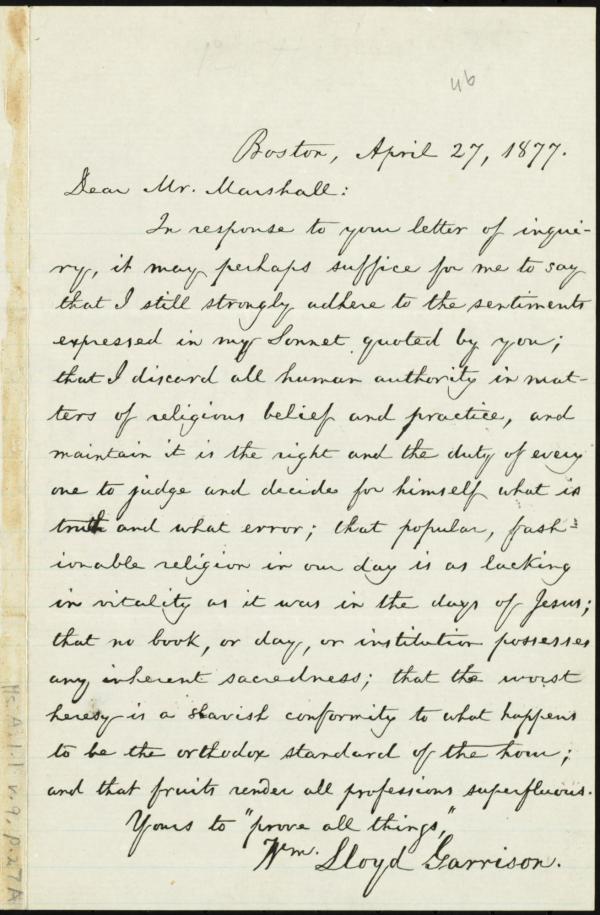 46
Boston, April 27, 1877.
Dear Mr. Marshall:
In response to your letter of inqui-
ry, it may perhaps suffice for me to say
that I still strongly adhere to the sentiments
expressed in my Sonnet quoted by you;
that I discard all human authority in mat-
ters of religious belief and practice, and
maintain it is the right and the duty of every
one to judge and decide for himself what is
truth and what error; that popular, fash-
ionable religion in our day is as lacking
in vitality as it was in the days of Jesus;
that no book, or day, or institution possesses
any inherent sacredness; that the worst
heresy is a slavish conformity to what happens
to be the orthodox standard of the hour;
and that fruits render all professions superfluous.
Yours to "prove all things,"
Wm. Lloyd Garrison.
Ms. A. 1. 1 v. 9, p. 27A